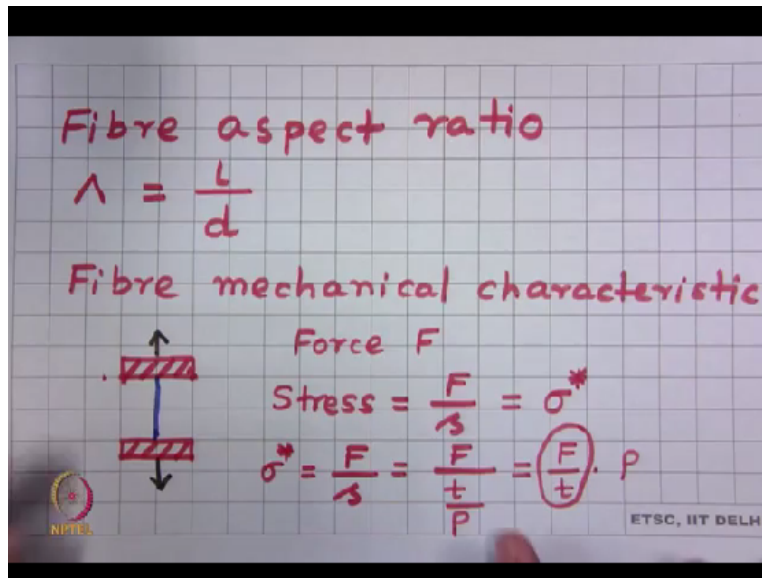 Fibre aspect ratio
Λ = l/d
Fibre mechanical characteristic
Force F
Stress = F/s = σ*
σ* = F/s = F/(t/ρ) = F/t · ρ
NPTEL
ETSC, IIT DELH